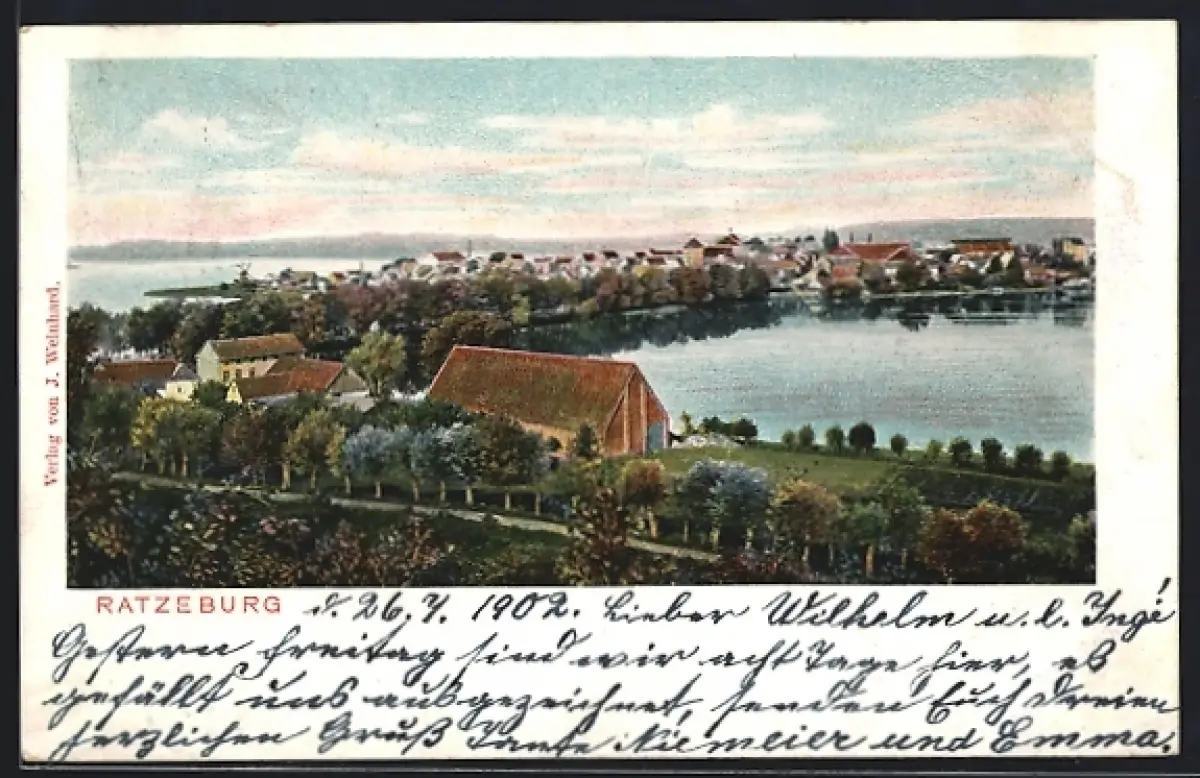 Verlag von J. Weinhard.
RATZEBURG d. 26.7. 1902. Lieber Wilhelm u. l. Inge!
Gestern Freitag sind wir acht Tage hier, es
gefällt uns ausgezeichnet, senden Euch Dreien
herzlichen Gruß Tante Niemeier und Emma.